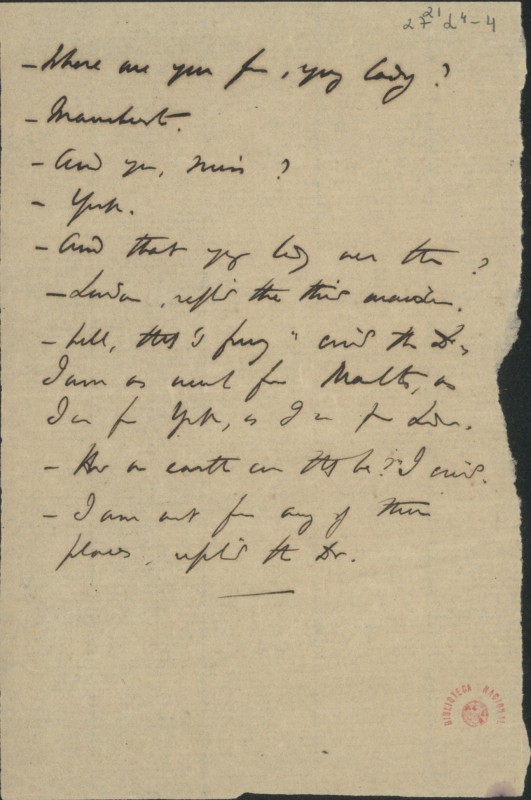 27 21 d4-4
- Where are you from, young lady?
- Manchester.
- And you, miss?
- York.
- And that young lady over there?
- London, replied the third maiden.
- Well, this is funny" cried the Dr,
I am as much from Malta, as
I am from York, as I am from London.
- How on earth can this be? I cried.
- I am not from any of these
places, replied the Dr.
BIBLIOTECA NACIONAL